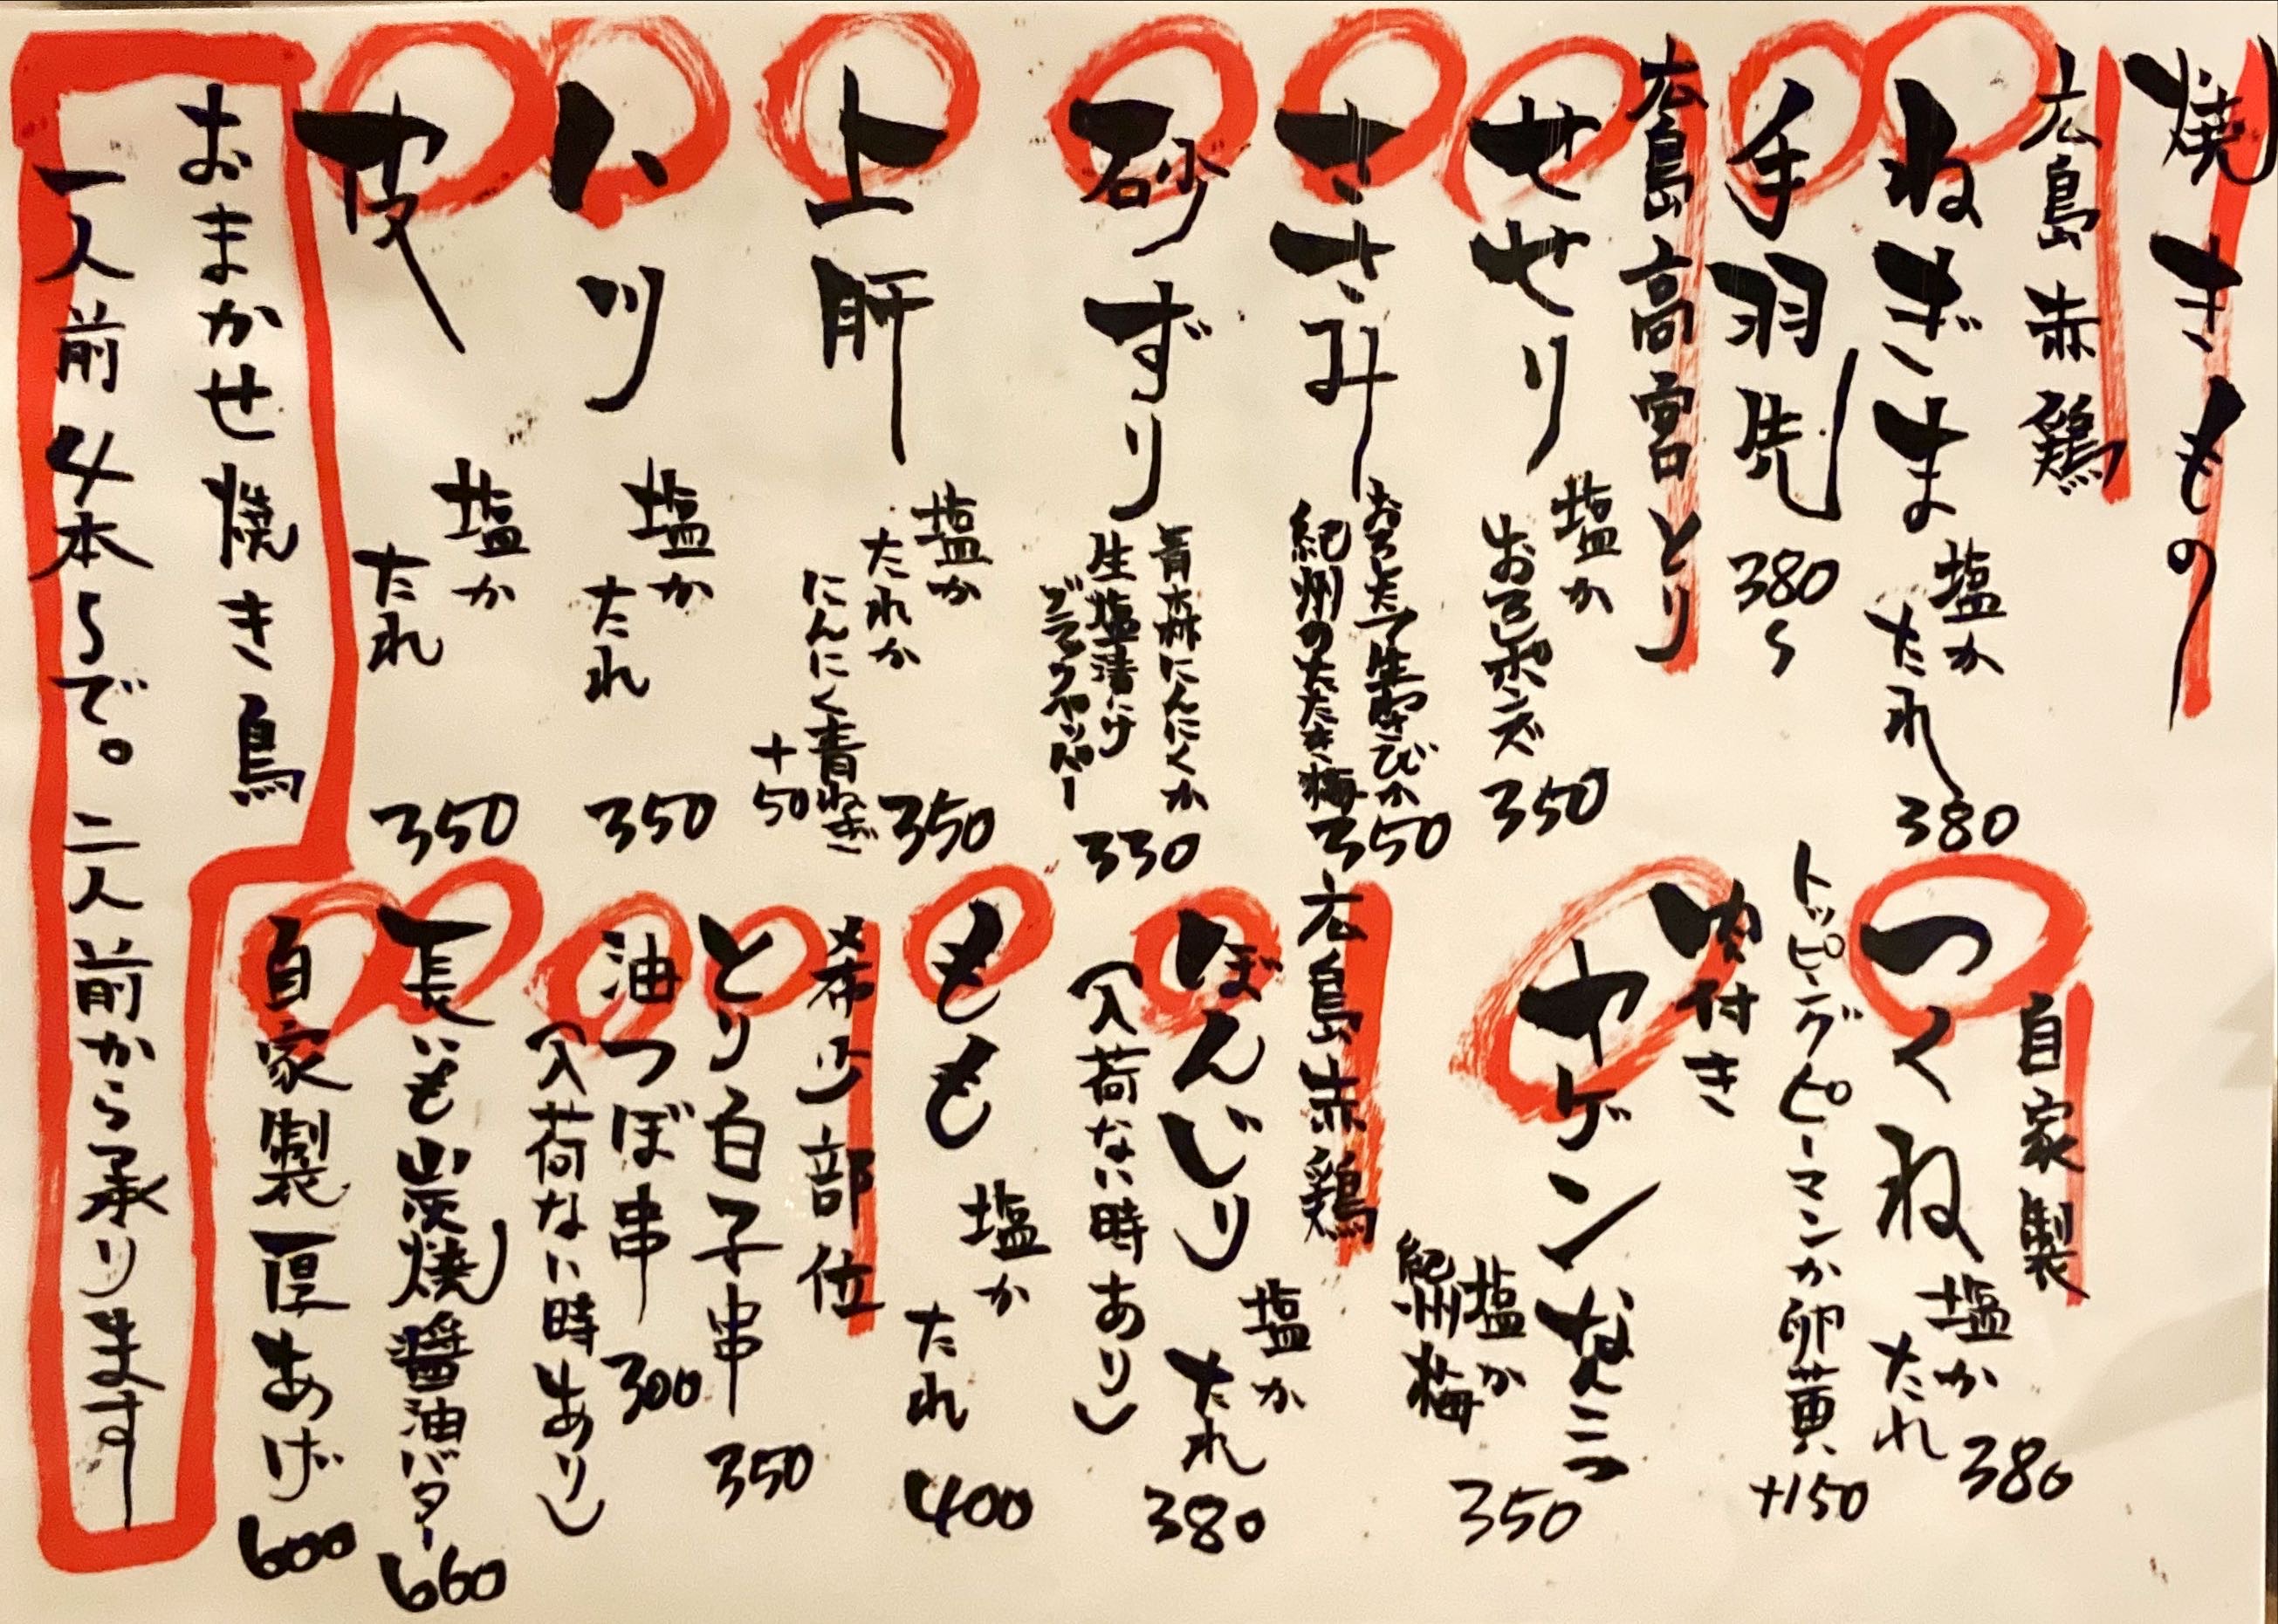 焼きもの
広島赤鶏
ねぎま
塩か
たれ
380
手羽先
380〜
広島高宮とり
せせり
塩か
お宮ポンズ
350
ささみ
おろしたて生わさびか
紀州のたたき梅
350
砂ずり
青森にんにくか
生塩漬け
ブラックペッパー
330
上肝
塩か
たれか
350
にんにく青ねぎ
+50
ハツ
塩か
たれ
350
皮
塩か
たれ
350
自家製
つくね
塩か
たれ
380
トッピングピーマンか卵黄
+150
肉付き
ヤゲンなんこつ
塩か
紀州梅
350
広島赤鶏
ぼんじり
塩か
たれ
380
(入荷ない時あり)
もも
塩か
たれ
400
希少部位
とり白子串
350
油つぼ串
300
(入荷ない時あり)
長いも炭焼醤油バター
660
自家製厚あげ
600
おまかせ焼き鳥
一人前4本〜で。二人前から承ります